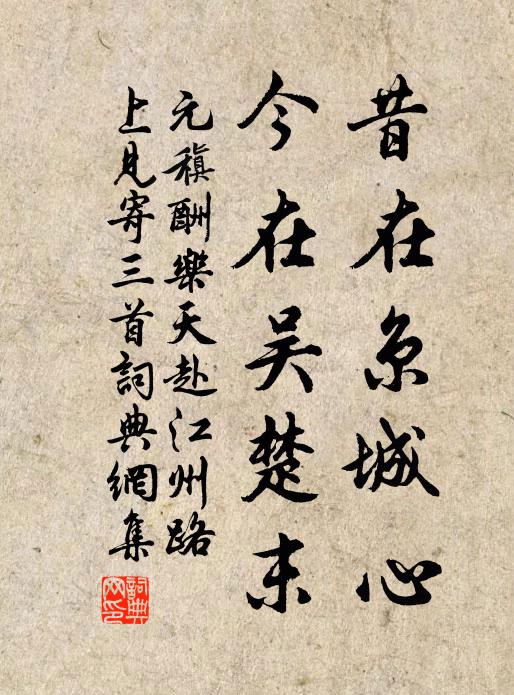 昔在京城心
今在吴楚末
元稹酬樂天赴江州路
上見寄三首詞典網集
詞典网印